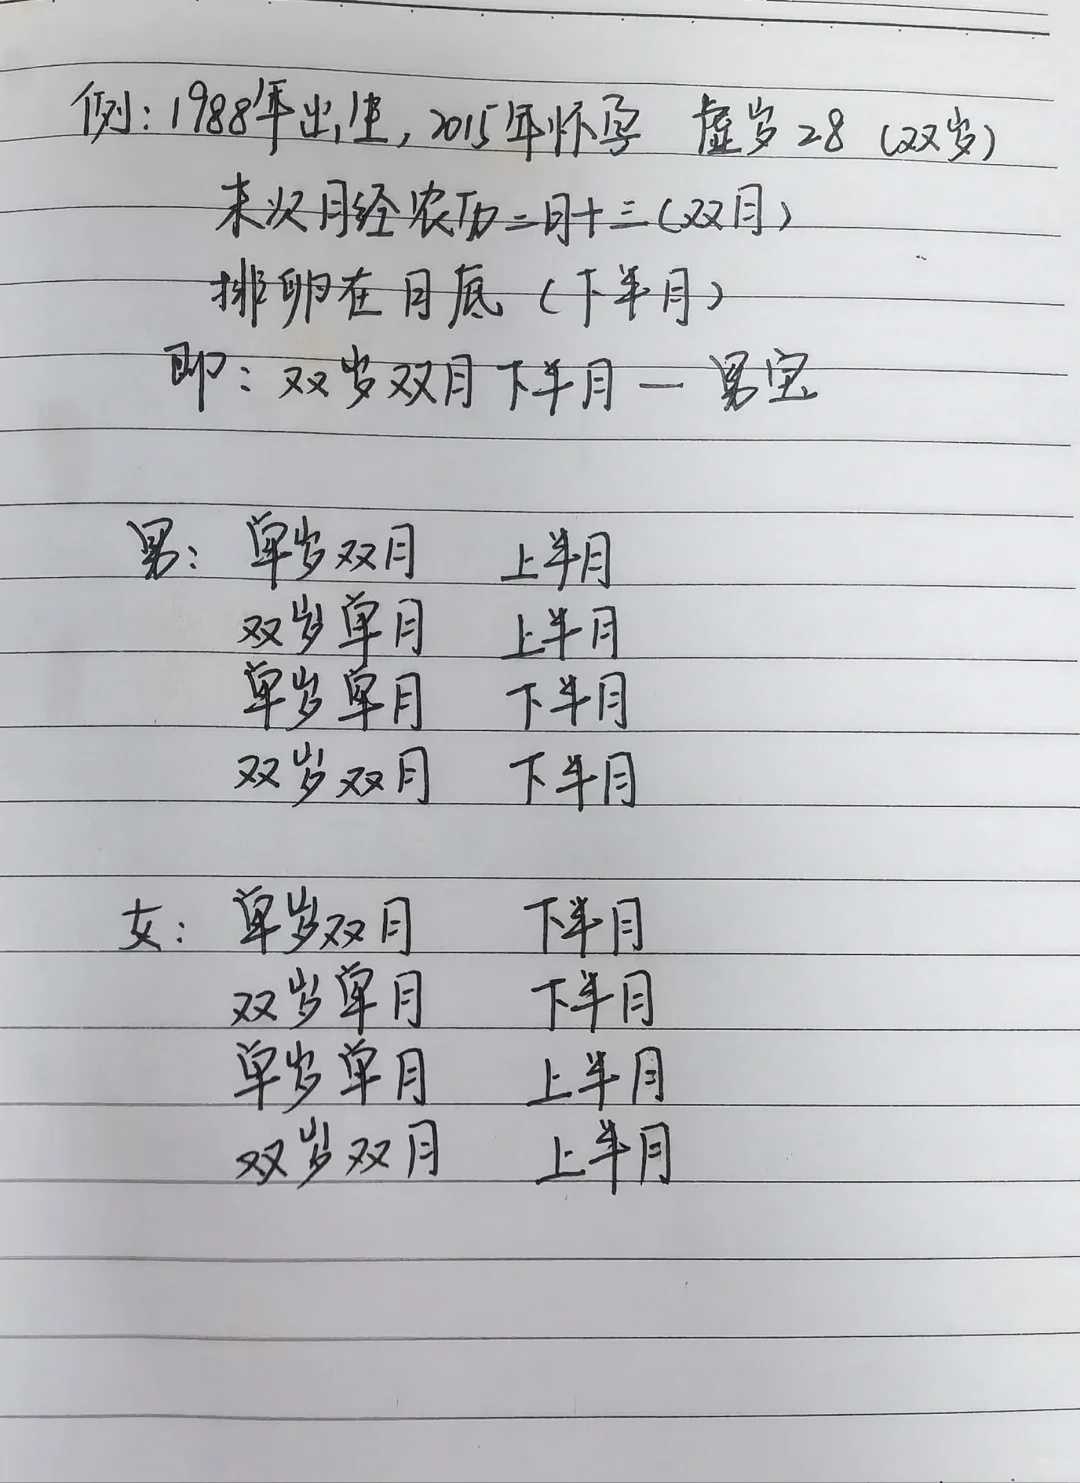 例：1988年出生，2015年怀孕 虚岁28（双岁）
末次月经农历二月十三（双月）
排卵在月底（下半月）
即：双岁双月下半月一男宝
男：单岁双月 上半月
双岁单月 上半月
单岁单月 下半月
双岁双月 下半月
女：单岁双月 下半月
双岁单月 下半月
单岁单月 上半月
双岁双月 上半月